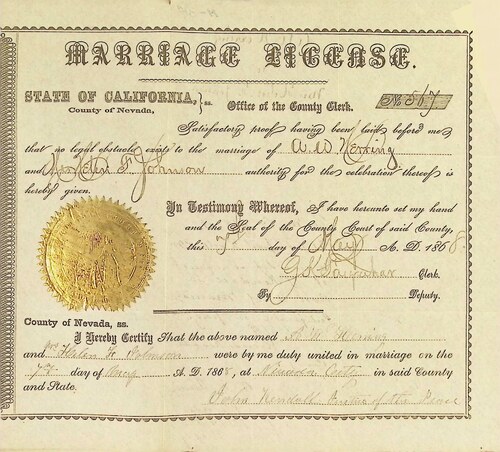 MARRIAGE LICENSE.
STATE OF CALIFORNIA, } ss.
County of Nevada,
Office of the County Clerk.
No. 567
Satisfactory proof having been laid before me
that no legal obstacle exists to the marriage of A. W.
and Mrs Helen F. Johnson authority for the celebration thereof is
hereby given.
In Testimony Whereof, I have hereunto set my hand
and the Seal of the County Court of said County,
this 7th day of May A. D. 1868.
G. K. Clerk.
By Deputy.
County of Nevada, ss.
I Hereby Certify That the above named A W
and Mrs Helen F. Johnson were by me duly united in marriage on the
7th day of May A. D. 1868, at Nevada City in said County
and State.
John Kendall Justice of the Peace